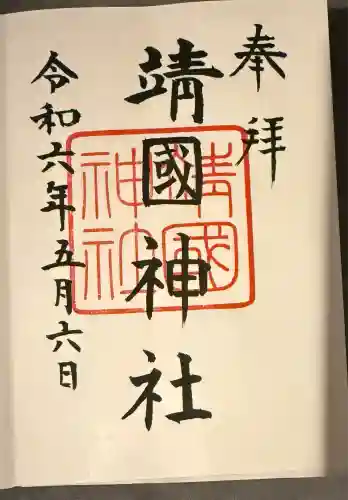 奉拝
靖國神社
令和六年五月六日
靖國
神社